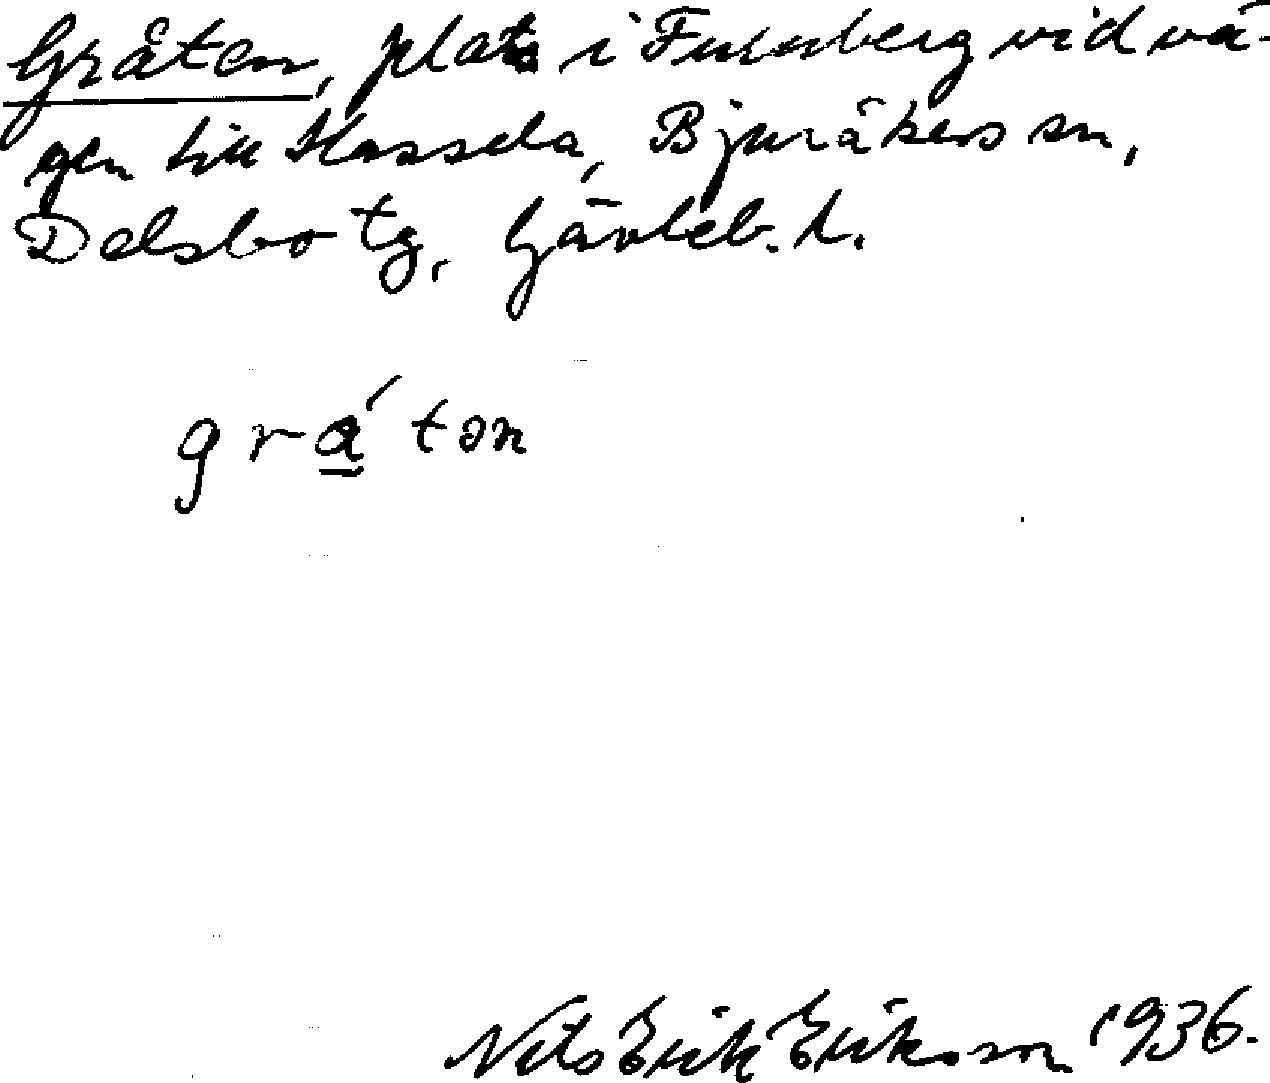 Gråten, plats i Furuberg vid vä-
gen till Hassela, Bjuråkers sn,
Delsbo tg, Gävleb. l.
grά̲ton
Nils Erik Eriksson 1936.